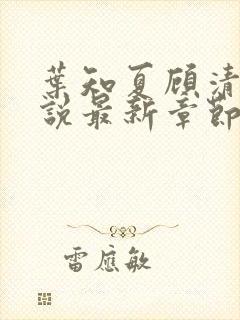 葉知夏顧清
說最新章節
雷應敏